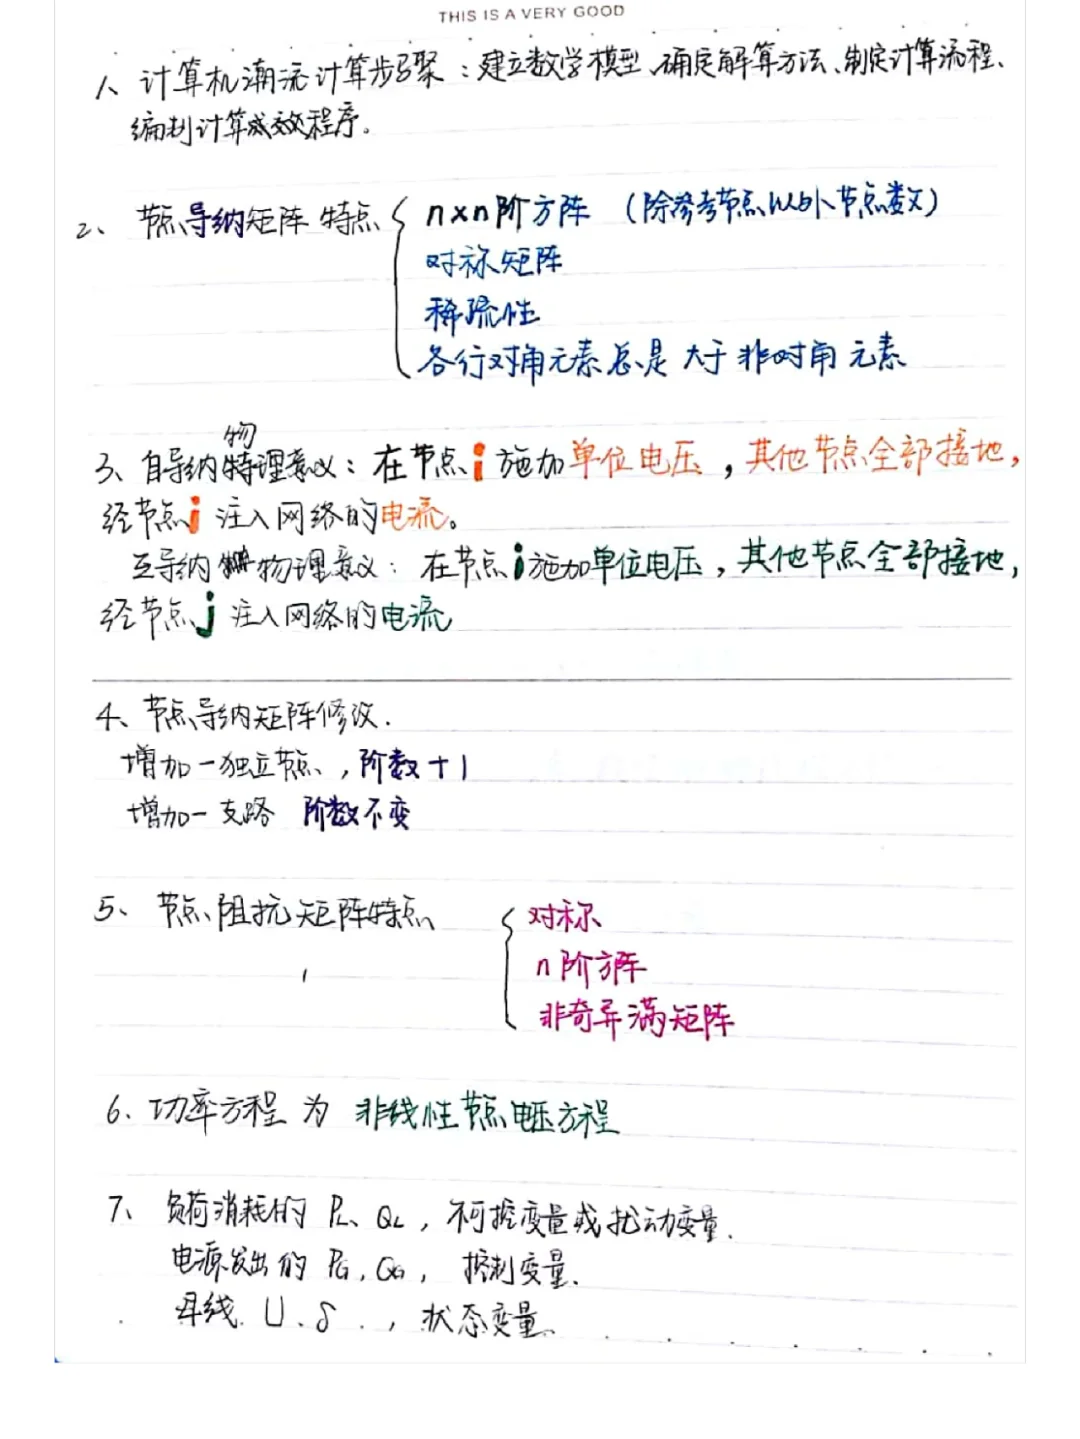 THIS IS A VERY GOOD
1、计算机潮流计算步骤：建立数学模型、确定解算方法、制定计算流程、
编制计算成效程序。
2、节点导纳矩阵特点 { n×n阶方阵 （除参考节点以外节点数）
对称矩阵
稀疏性
各行对角元素总是大于非对角元素
物
3、自导纳特理意义：在节点i施加单位电压，其他节点全部接地，
经节点i注入网络的电流。
互导纳物理意义：在节点i施加单位电压，其他节点全部接地，
经节点j注入网络的电流
4、节点导纳矩阵修改.
增加一独立节点，阶数+1
增加一支路 阶数不变
5、节点阻抗矩阵特点 { 对称
n阶方阵
非奇异满矩阵
6、功率方程为 非线性节点电压方程
7、负荷消耗的 PL、QL，不可控变量或扰动变量.
电源发出的 PG，QG，控制变量.
母线 U、δ，状态变量、